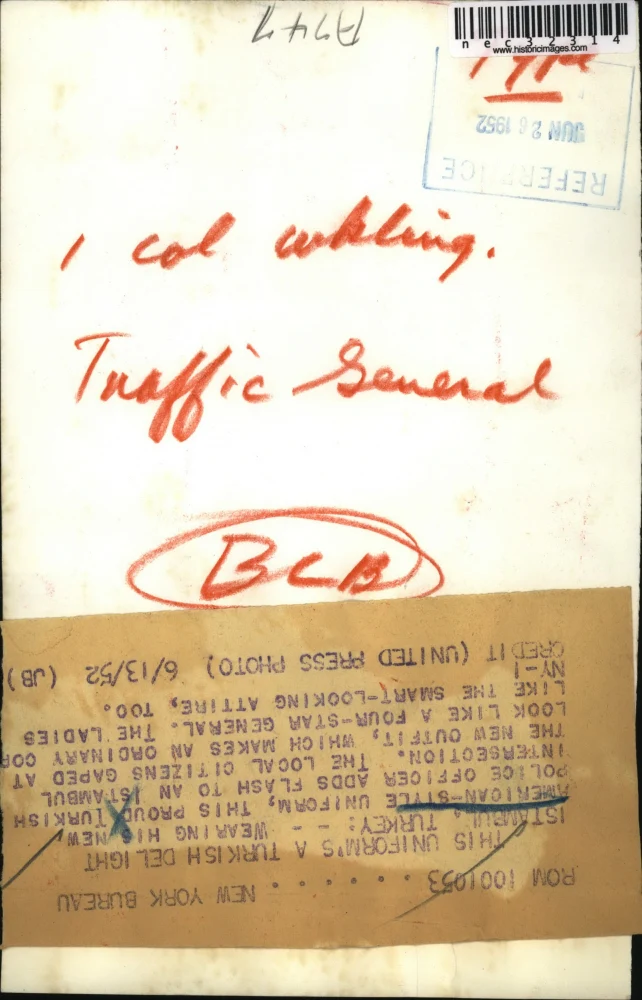 A747
nec32314
www.historicimages.com
Type
JUN 26 1952
REFERENCE
1 col
Traffic General
BCB
ROM 1001053 . . . . . . . NEW YORK BUREAU
THIS UNIFORM'S A TURKISH DELIGHT
ISTANBUL, TURKEY: - - WEARING HIS NEW
AMERICAN-STYLE UNIFORM, THIS PROUD TURKISH
POLICE OFFICER ADDS FLASH TO AN ISTANBUL
INTERSECTION. THE LOCAL CITIZENS GAPED AT
THE NEW OUTFIT, WHICH MAKES AN ORDINARY COP
LOOK LIKE A FOUR-STAR GENERAL. THE LADIES
LIKE THE SMART-LOOKING ATTIRE, TOO.
NY-1
CREDIT (UNITED PRESS PHOTO) 6/13/52 (JB)